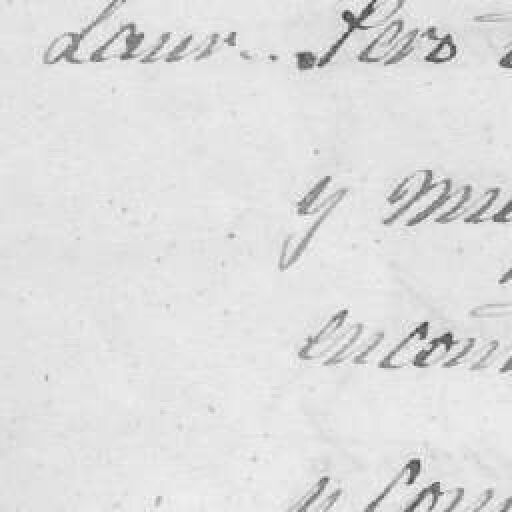 Laur... Pero
y mu
encon
y con